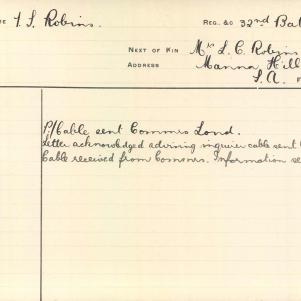 I. L. Robins.
REG. &C 32nd Bat
NEXT OF KIN Mr L. C. Robins
ADDRESS Manna Hill
S.A.
P/Cable sent Commrs Lond.
Letter acknowledged advising inquirer cable sent
Cable received from Commrs. Information se